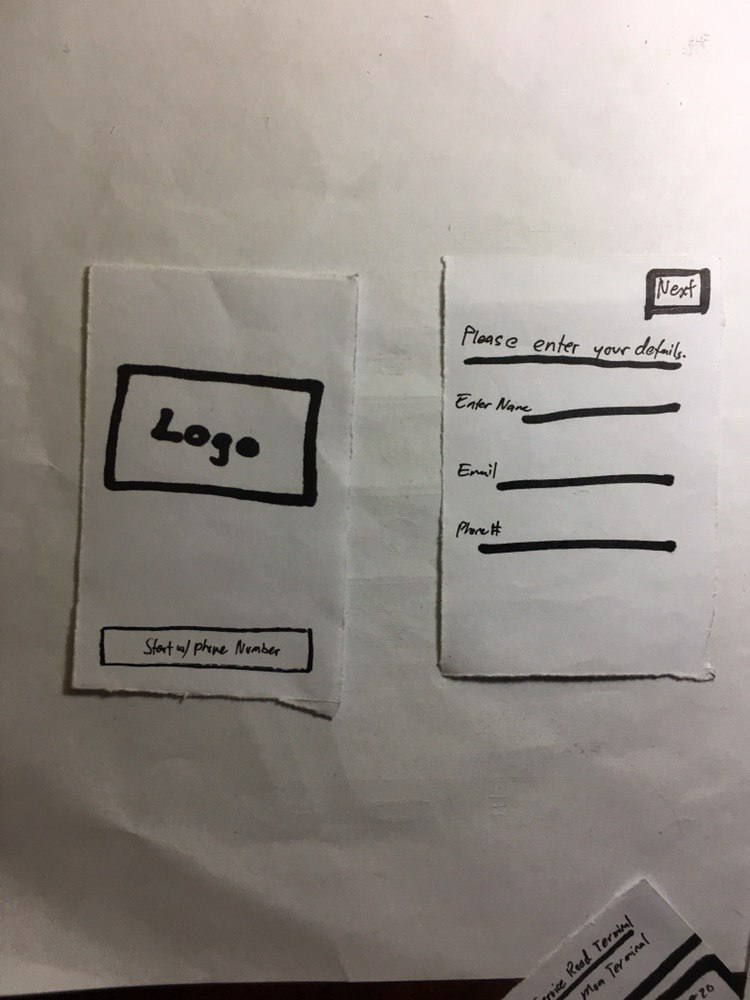 Logo
Start w/ phone Number
Next
Please enter your details.
Enter Name
Email
Phone#
Road Terminal
Terminal